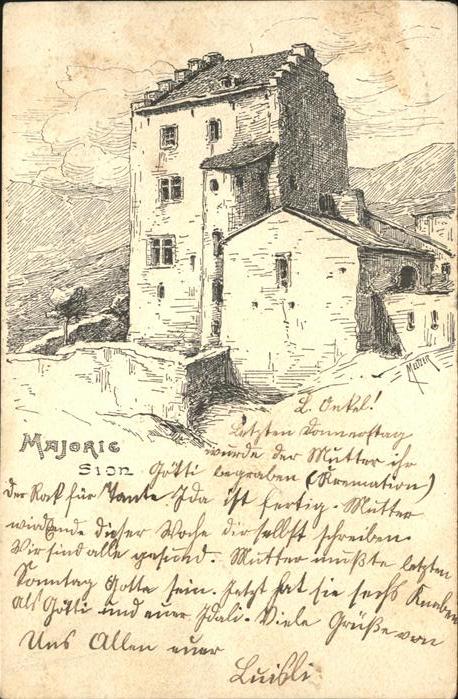 Melzer
Majorie
Sion
L. Onkel!
Letzten Donnerstag
wurde der Mutter ihr
Götti begraben (Kremation)
Der Rock für Tante Ida ist fertig. Mutter
wird Ende dieser Woche dir selbst schreiben.
Wir sind alle gesund. Mutter mußte letzten
Sonntag Gotte sein. Jetzt hat sie sechs Knaben
als Götti und euer Idali. Viele Grüße von
Uns Allen euer
Luisli